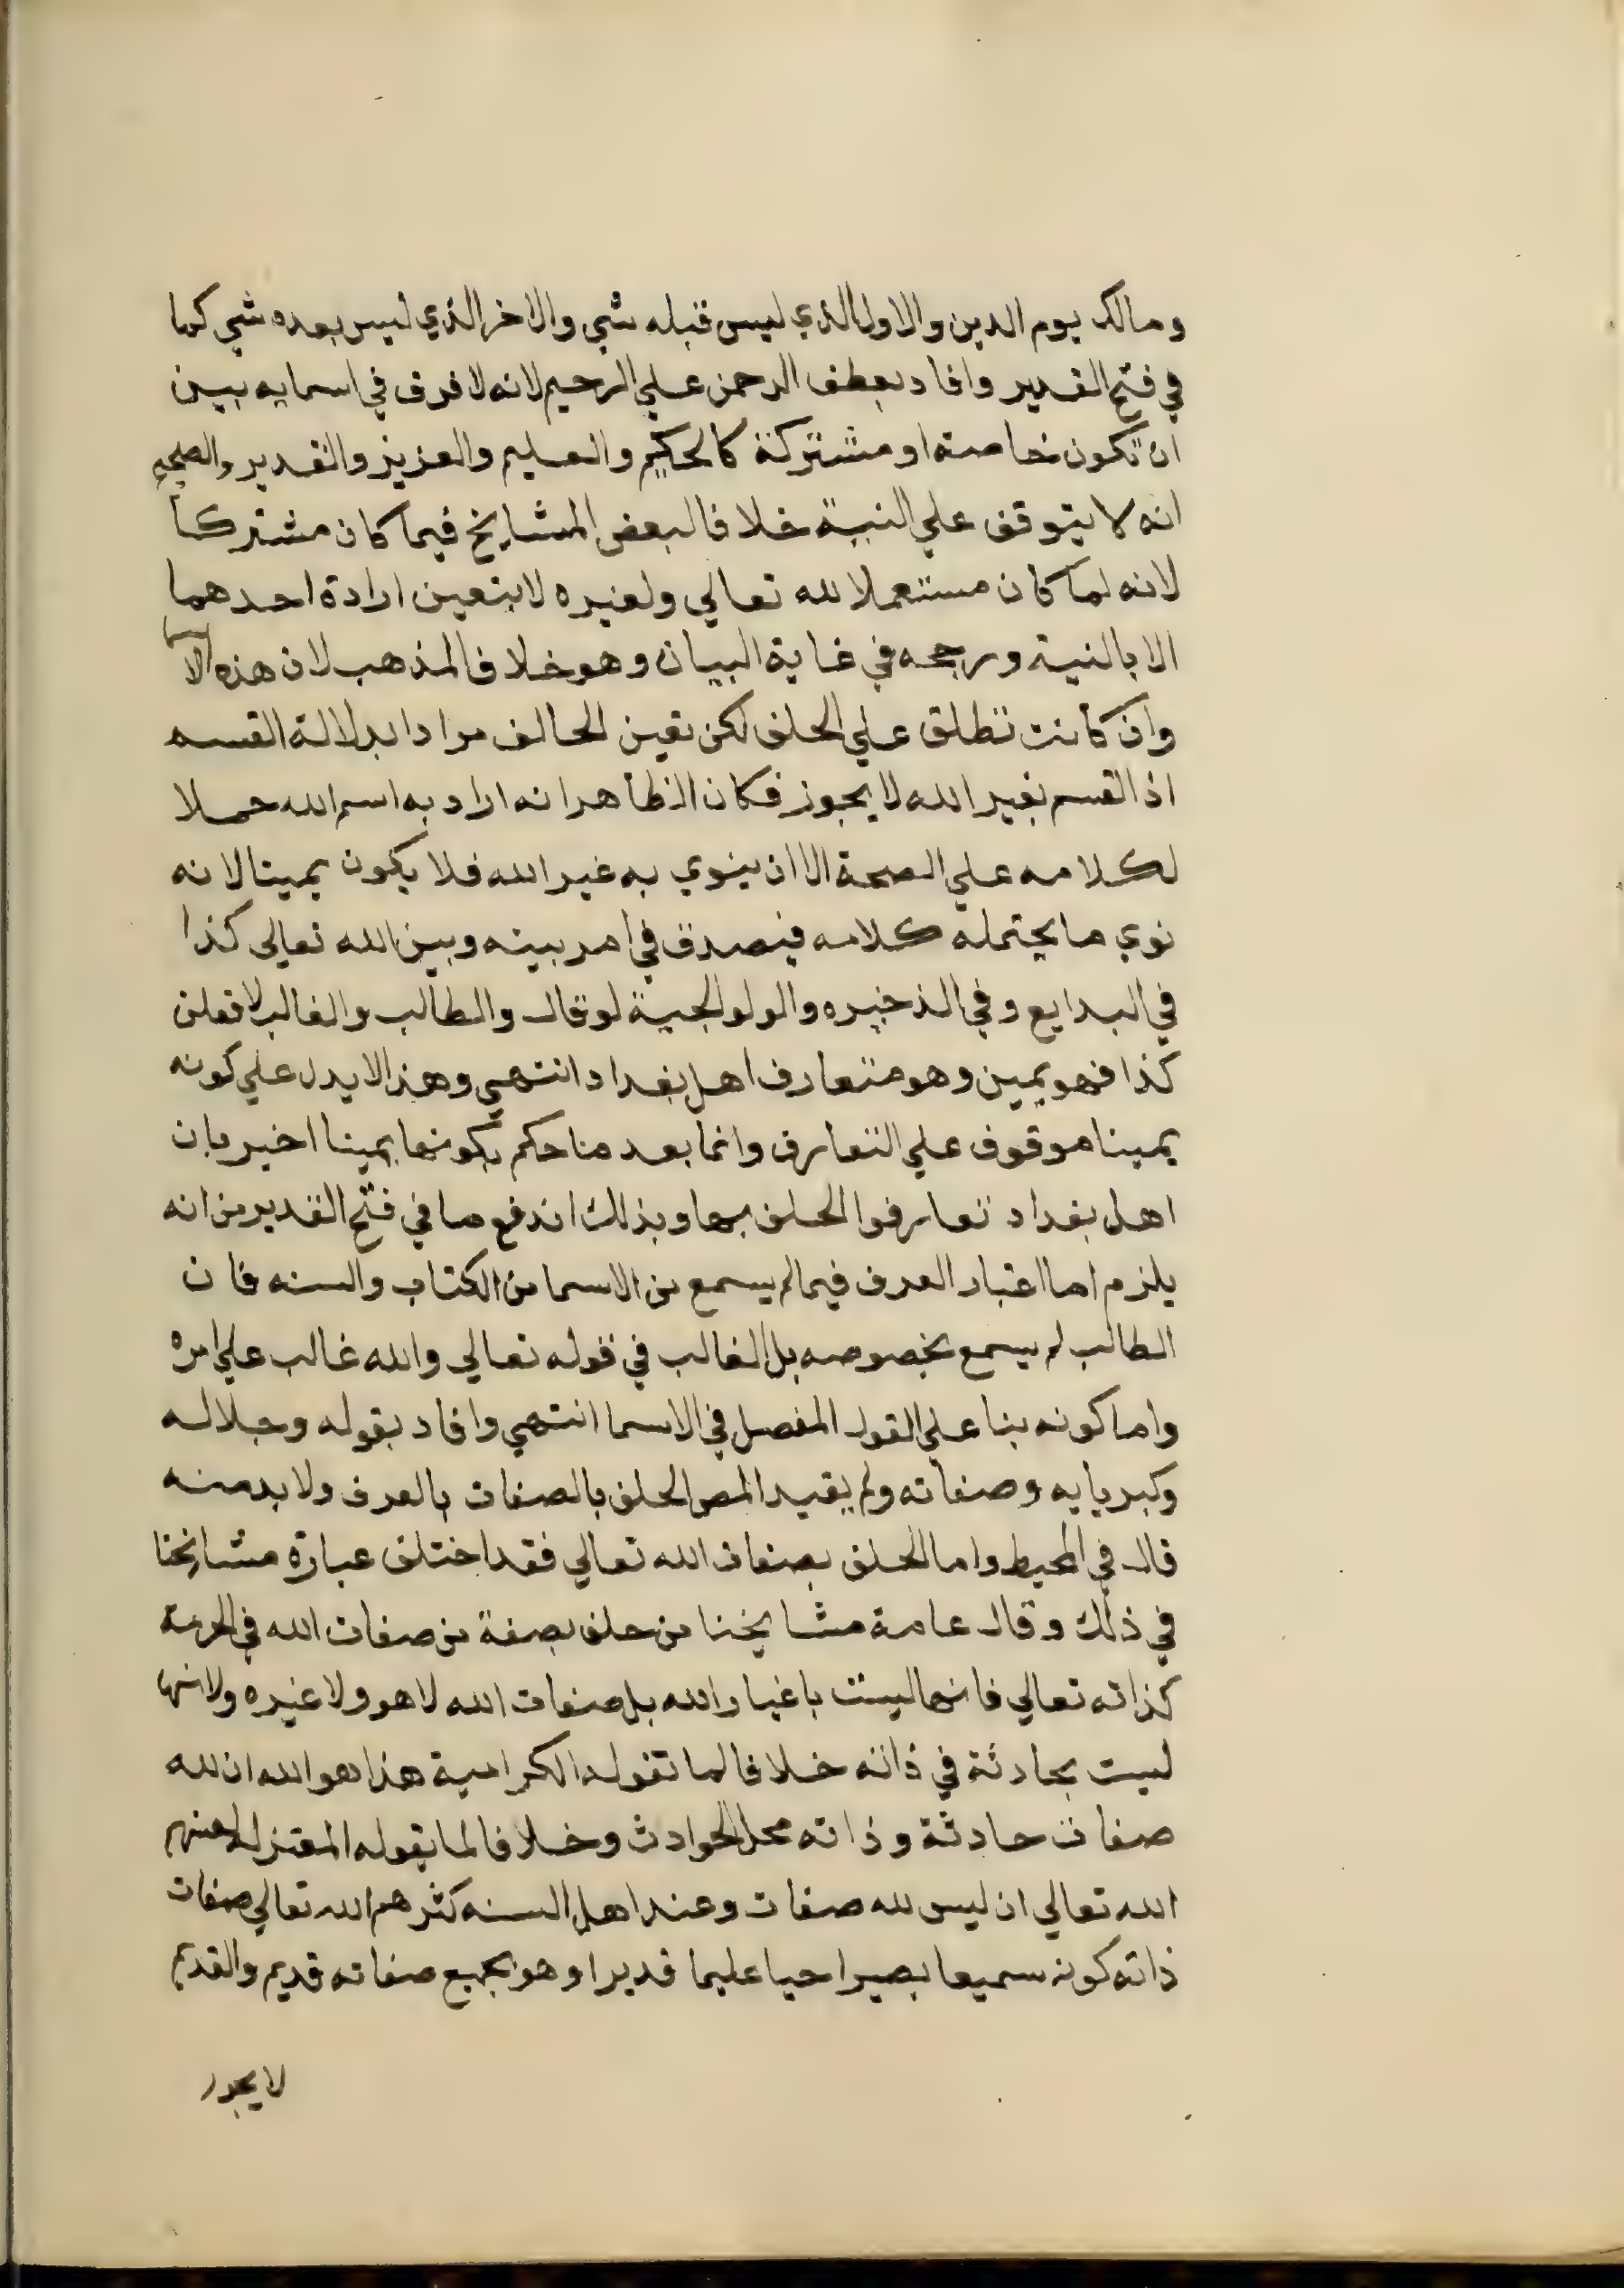 ومالك يوم الدين والاول الذي ليس قبله شي والاخر الذي ليس بعده شي كما
في فتح القدير وافاد بعطف الرحمن علي الرحيم لانه لا فرق في اسمايه بين
ان تكون خاصته او مشتركة كالحكيم والعليم والعزيز والقدير والصحيح
انه لا يتوقف علي النية خلافا لبعض المشايخ فيما كان مشتركا
لانه لما كان مستعملا لله تعالي ولغيره لا يتعين ارادة احدهما
الا بالنية ورجحه في غاية البيان وهو خلاف المذهب لان هذه الاسما
وان كانت تطلق علي الحلف لكن تعين الحالف مرادا بدلالة القسم
اذ القسم بغير الله لا يجوز فكان الظاهر انه اراد به اسم الله حملا
لكلامه علي الصحة الا ان ينوي به غير الله فلا يكون يمينا لانه
نوي ما يحتمله كلامه فيصدق في امر بينه وبين الله تعالي كذا
في البدايع وفي الذخيره والولوالجية لو قال والطالب والغالب لافعلن
كذا فهو يمين وهو متعارف اهل بغداد انتهي وهذا لا يدل علي كونه
يمينا موقوف علي التعارف وانما بعد ما حكم بكونها يمينا اخير بان
اهل بغداد تعارفوا الحلف بها وبذلك اندفع ما في فتح القدير من انه
يلزم اما اعتبار العرف فيما لم يسمع من الاسما من الكتاب والسنه فان
الطالب لم يسمع بخصوصه بل الغالب في قوله تعالي والله غالب علي امره
واما كونه بنا علي القول المفصل في الاسما انتهي وافاد بقوله وجلاله
وكبريايه وصفاته ولم يقيد المص الحلف بالصفات بالعرف ولا بد منه
قال في المحيط واما الحلف بصفات الله تعالي فقد اختلف عبارة مشايخنا
في ذلك وقال عامة مشايخنا من حلف بصفة من صفات الله في الحرمة
كذاته تعالي فانها ليست باغيار الله بل صفات الله لا هو ولا غيره ولانها
ليست بحادثة في ذاته خلافا لما تقوله الكرامية هذا هو الله ان لله
صفات حادثة وذاته محل الحوادث وخلافا لما يقوله المعتزله لعنهم
الله تعالي ان ليس لله صفات وعند اهل السنه كثرهم الله تعالي صفات
ذاته كونه سميعا بصيرا حيا عليما قديرا وهو بجميع صفاته قديم والقديم
لا يجوز